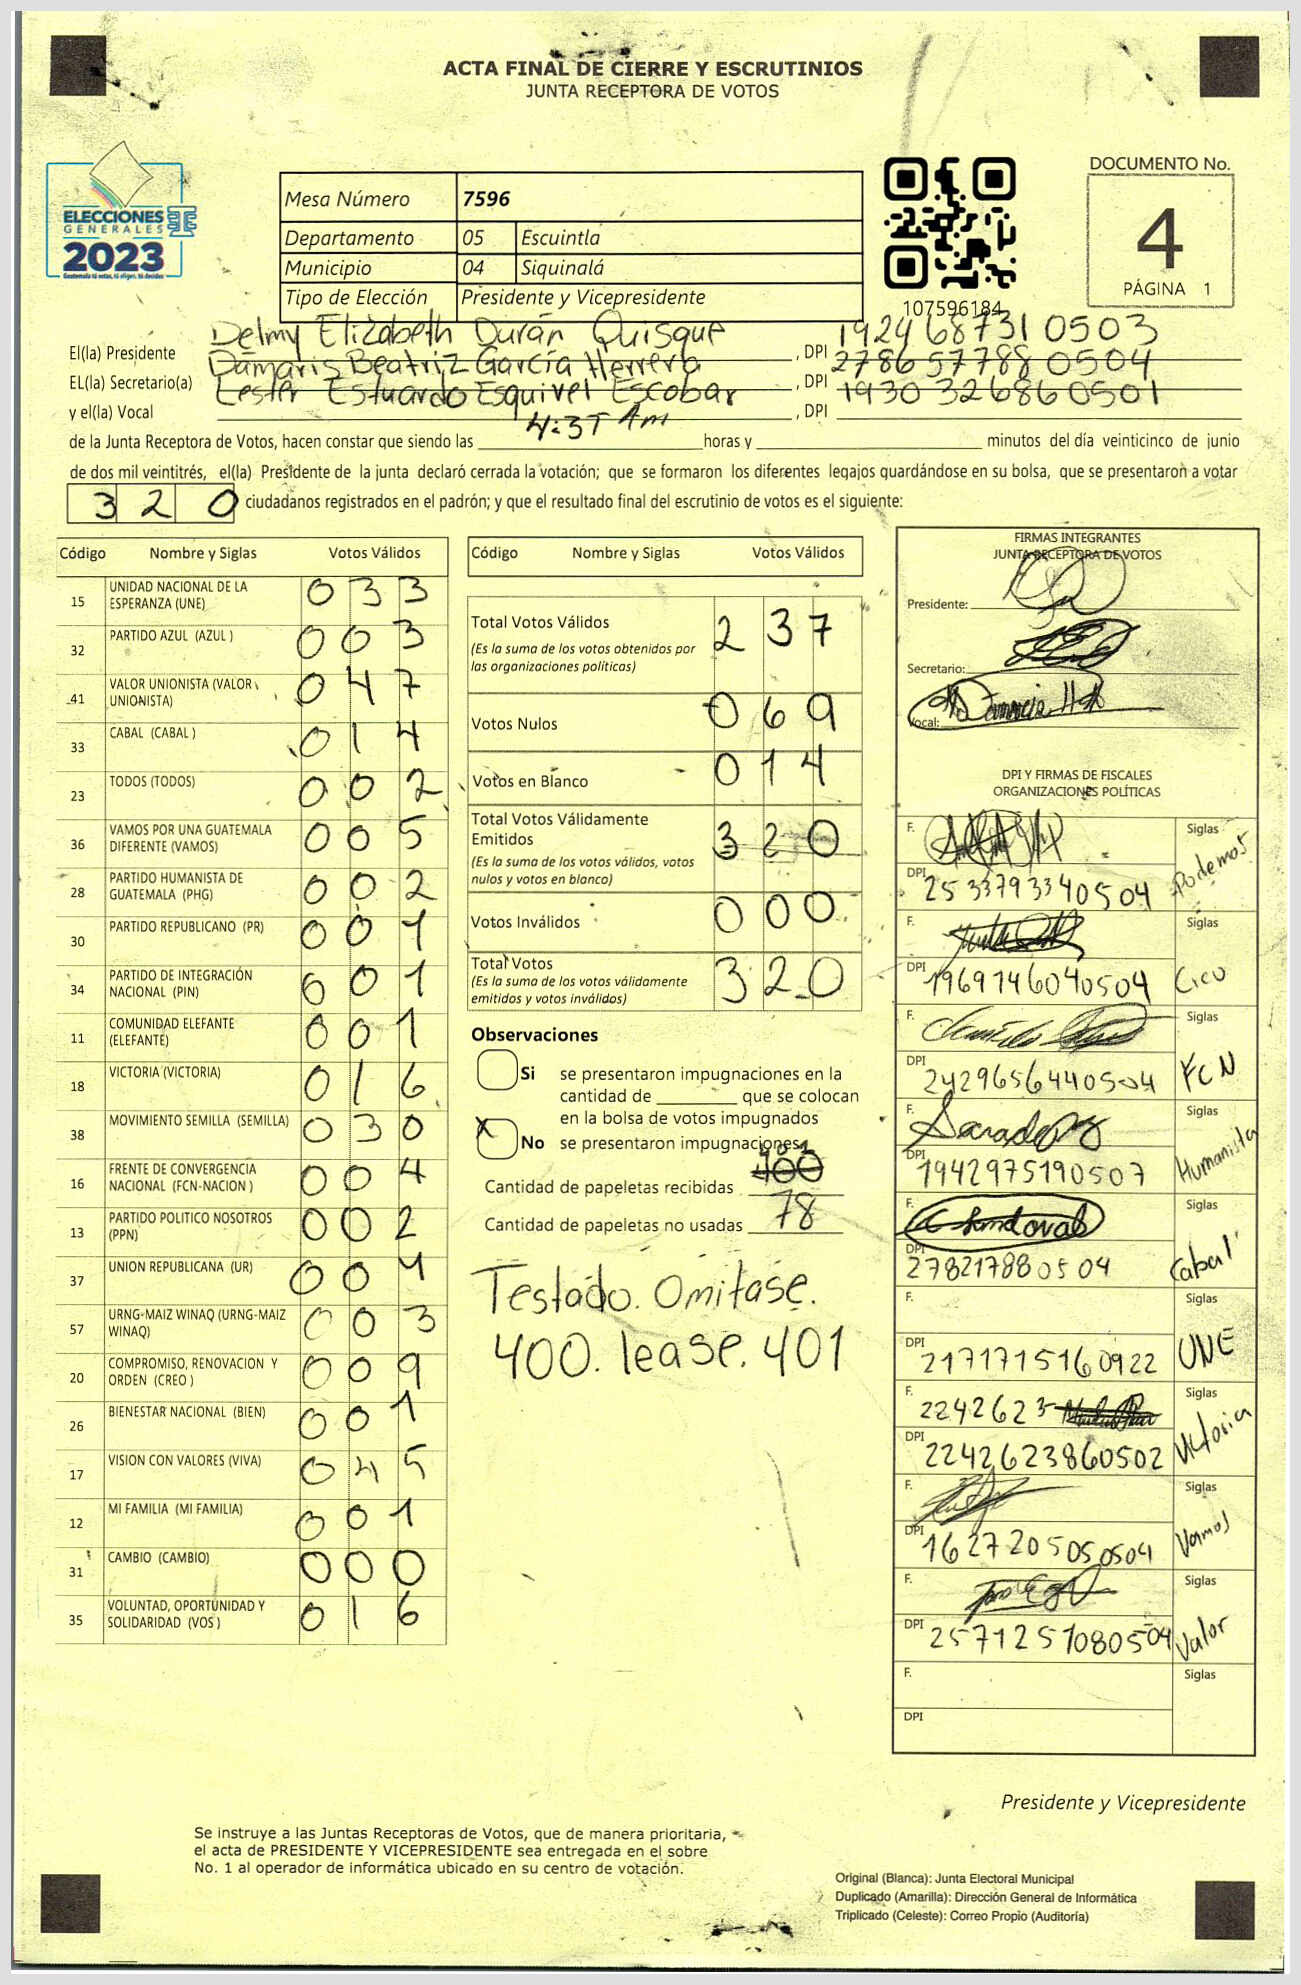 ACTA FINAL DE CIERRE Y ESCRUTINIOS
JUNTA RECEPTORA DE VOTOS
ELECCIONES
GENERALES
2023
Guatemala tú votas, tú eliges, tú decides
Mesa Número 7596
Departamento 05 Escuintla
Municipio 04 Siquinalá
Tipo de Elección Presidente y Vicepresidente
107596184
DOCUMENTO No.
4
PÁGINA 1
El(la) Presidente Delmy Elizabeth Durán Quisque , DPI 1924687310503
EL(la) Secretario(a) Damaris Beatriz García Herrera , DPI 2786577880504
y el(la) Vocal Lester Estuardo Esquivel Escobar , DPI 1930326860501
de la Junta Receptora de Votos, hacen constar que siendo las 4:37 Am horas y minutos del día veinticinco de junio
de dos mil veintitrés, el(la) Presidente de la junta declaró cerrada la votación; que se formaron los diferentes legajos guardándose en su bolsa, que se presentaron a votar
320 ciudadanos registrados en el padrón; y que el resultado final del escrutinio de votos es el siguiente:
Código Nombre y Siglas Votos Válidos
15 UNIDAD NACIONAL DE LA ESPERANZA (UNE) 033
32 PARTIDO AZUL (AZUL ) 003
41 VALOR UNIONISTA (VALOR UNIONISTA) 047
33 CABAL (CABAL ) 014
23 TODOS (TODOS) 002
36 VAMOS POR UNA GUATEMALA DIFERENTE (VAMOS) 005
28 PARTIDO HUMANISTA DE GUATEMALA (PHG) 002
30 PARTIDO REPUBLICANO (PR) 001
34 PARTIDO DE INTEGRACIÓN NACIONAL (PIN) 001
11 COMUNIDAD ELEFANTE (ELEFANTE) 001
18 VICTORIA (VICTORIA) 016
38 MOVIMIENTO SEMILLA (SEMILLA) 030
16 FRENTE DE CONVERGENCIA NACIONAL (FCN-NACION ) 004
13 PARTIDO POLITICO NOSOTROS (PPN) 002
37 UNION REPUBLICANA (UR) 004
57 URNG-MAIZ WINAQ (URNG-MAIZ WINAQ) 003
20 COMPROMISO, RENOVACION Y ORDEN (CREO ) 009
26 BIENESTAR NACIONAL (BIEN) 001
17 VISION CON VALORES (VIVA) 045
12 MI FAMILIA (MI FAMILIA) 001
31 CAMBIO (CAMBIO) 000
35 VOLUNTAD, OPORTUNIDAD Y SOLIDARIDAD (VOS ) 016
Código Nombre y Siglas Votos Válidos
Total Votos Válidos 237
(Es la suma de los votos obtenidos por
las organizaciones políticas)
Votos Nulos 069
Votos en Blanco 014
Total Votos Válidamente
Emitidos 320
(Es la suma de los votos válidos, votos
nulos y votos en blanco)
Votos Inválidos 000
Total Votos 320
(Es la suma de los votos válidamente
emitidos y votos inválidos)
Observaciones
Si se presentaron impugnaciones en la
cantidad de que se colocan
en la bolsa de votos impugnados
X No se presentaron impugnaciones
401
Cantidad de papeletas recibidas 400
Cantidad de papeletas no usadas 78
Testado. Omitase.
400. lease. 401
FIRMAS INTEGRANTES
JUNTA RECEPTORA DE VOTOS
Presidente:
Secretario:
Vocal:
DPI Y FIRMAS DE FISCALES
ORGANIZACIONES POLÍTICAS
F. Siglas Podemos
DPI 2533793340504
F. Siglas
DPI 1969746040504
F. Siglas FCN
DPI 2429656440504
F. Siglas Humanista
DPI 1942975190507
F. Sandoval Siglas Cabal
DPI 278217880504
F. Siglas UNE
DPI 2171715160922
F. 2242623 Siglas Victoria
DPI 2242623860502
F. Siglas Vamos
DPI 1627205050504
F. Siglas Valor
DPI 2571251080504
F. Siglas
DPI
Presidente y Vicepresidente
Se instruye a las Juntas Receptoras de Votos, que de manera prioritaria,
el acta de PRESIDENTE Y VICEPRESIDENTE sea entregada en el sobre
No. 1 al operador de informática ubicado en su centro de votación.
Original (Blanca): Junta Electoral Municipal
Duplicado (Amarilla): Dirección General de Informática
Triplicado (Celeste): Correo Propio (Auditoría)